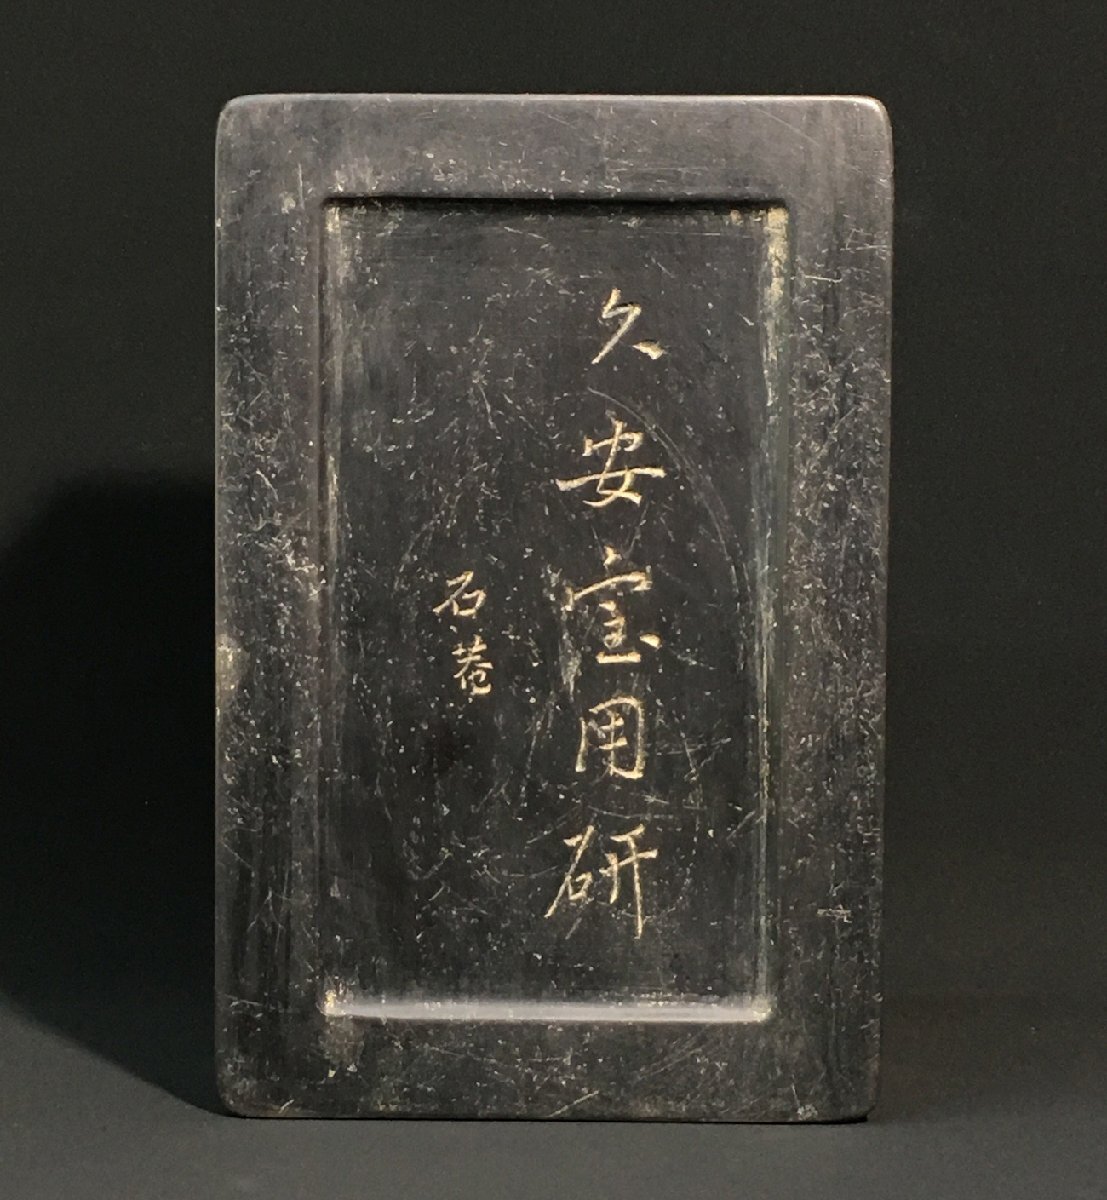 久安宝用研
石菴